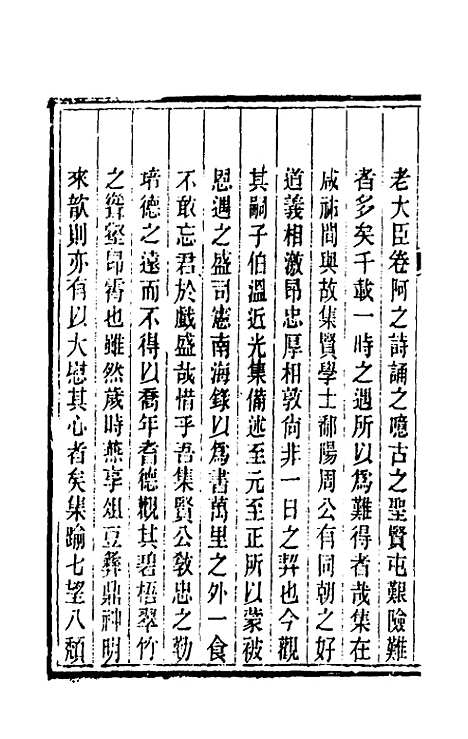 老大臣卷阿之詩誦之噫古之聖賢屯艱險難
者多矣千載一時之遇所以爲難得者哉集在
咸祌間與故集賢學士鄱陽周公有同朝之好
道義相激昂忠厚相敦尙非一日之契也今觀
其嗣子伯溫近光集備述至元至正所以蒙被
恩遇之盛司憲南海錄以爲書萬里之外一食
不敢忘君於戲盛哉惜乎吾集賢公敎忠之勤
培德之遠而不得以喬年耆德觀其碧梧翠竹
之聳壑昂霄也雖然歲時燕享俎豆彝鼎神明
來歆則亦有以大慰其心者矣集踰七望八頹